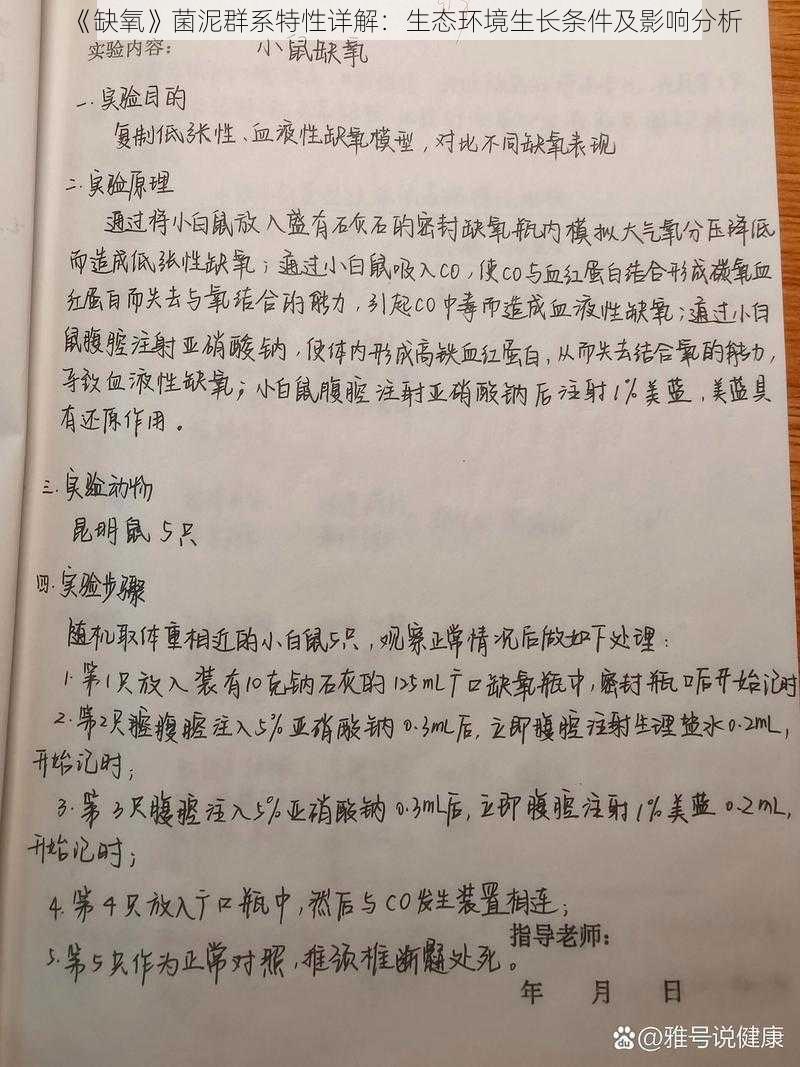 《缺氧》菌泥群系特性详解：生态环境生长条件及影响分析
实验内容：
小鼠缺氧
一.实验目的
复制低张性、血液性缺氧模型，对比不同缺氧表现
二.实验原理
通过将小白鼠放入盛有石灰石的密封缺氧瓶内模拟大气氧分压降低
而造成低张性缺氧；通过小白鼠吸入CO，使CO与血红蛋白结合形成碳氧血
红蛋白而失去与氧结合的能力，引起CO中毒而造成血液性缺氧；通过小白
鼠腹腔注射亚硝酸钠，使体内形成高铁血红蛋白，从而失去结合氧的能力，
导致血液性缺氧；小白鼠腹腔注射亚硝酸钠后注射1%美蓝，美蓝具
有还原作用。
三.实验动物
昆明鼠5只
四.实验步骤
随机取体重相近的小白鼠5只，观察正常情况后做如下处理：
1.第1只放入装有10克钠石灰的125mL广口缺氧瓶中，密封瓶口后开始记时
2.第2只腹腔注入5%亚硝酸钠0.3mL后，立即腹腔注射生理盐水0.2mL，
开始记时；
3.第3只腹腔注入5%亚硝酸钠0.3mL后，立即腹腔注射1%美蓝0.2mL，
开始记时；
4.第4只放入广口瓶中，然后与CO发生装置相连；
指导老师：
5.第5只作为正常对照，推颈椎断髓处死。
年 月 日
Bai du @雅号说健康